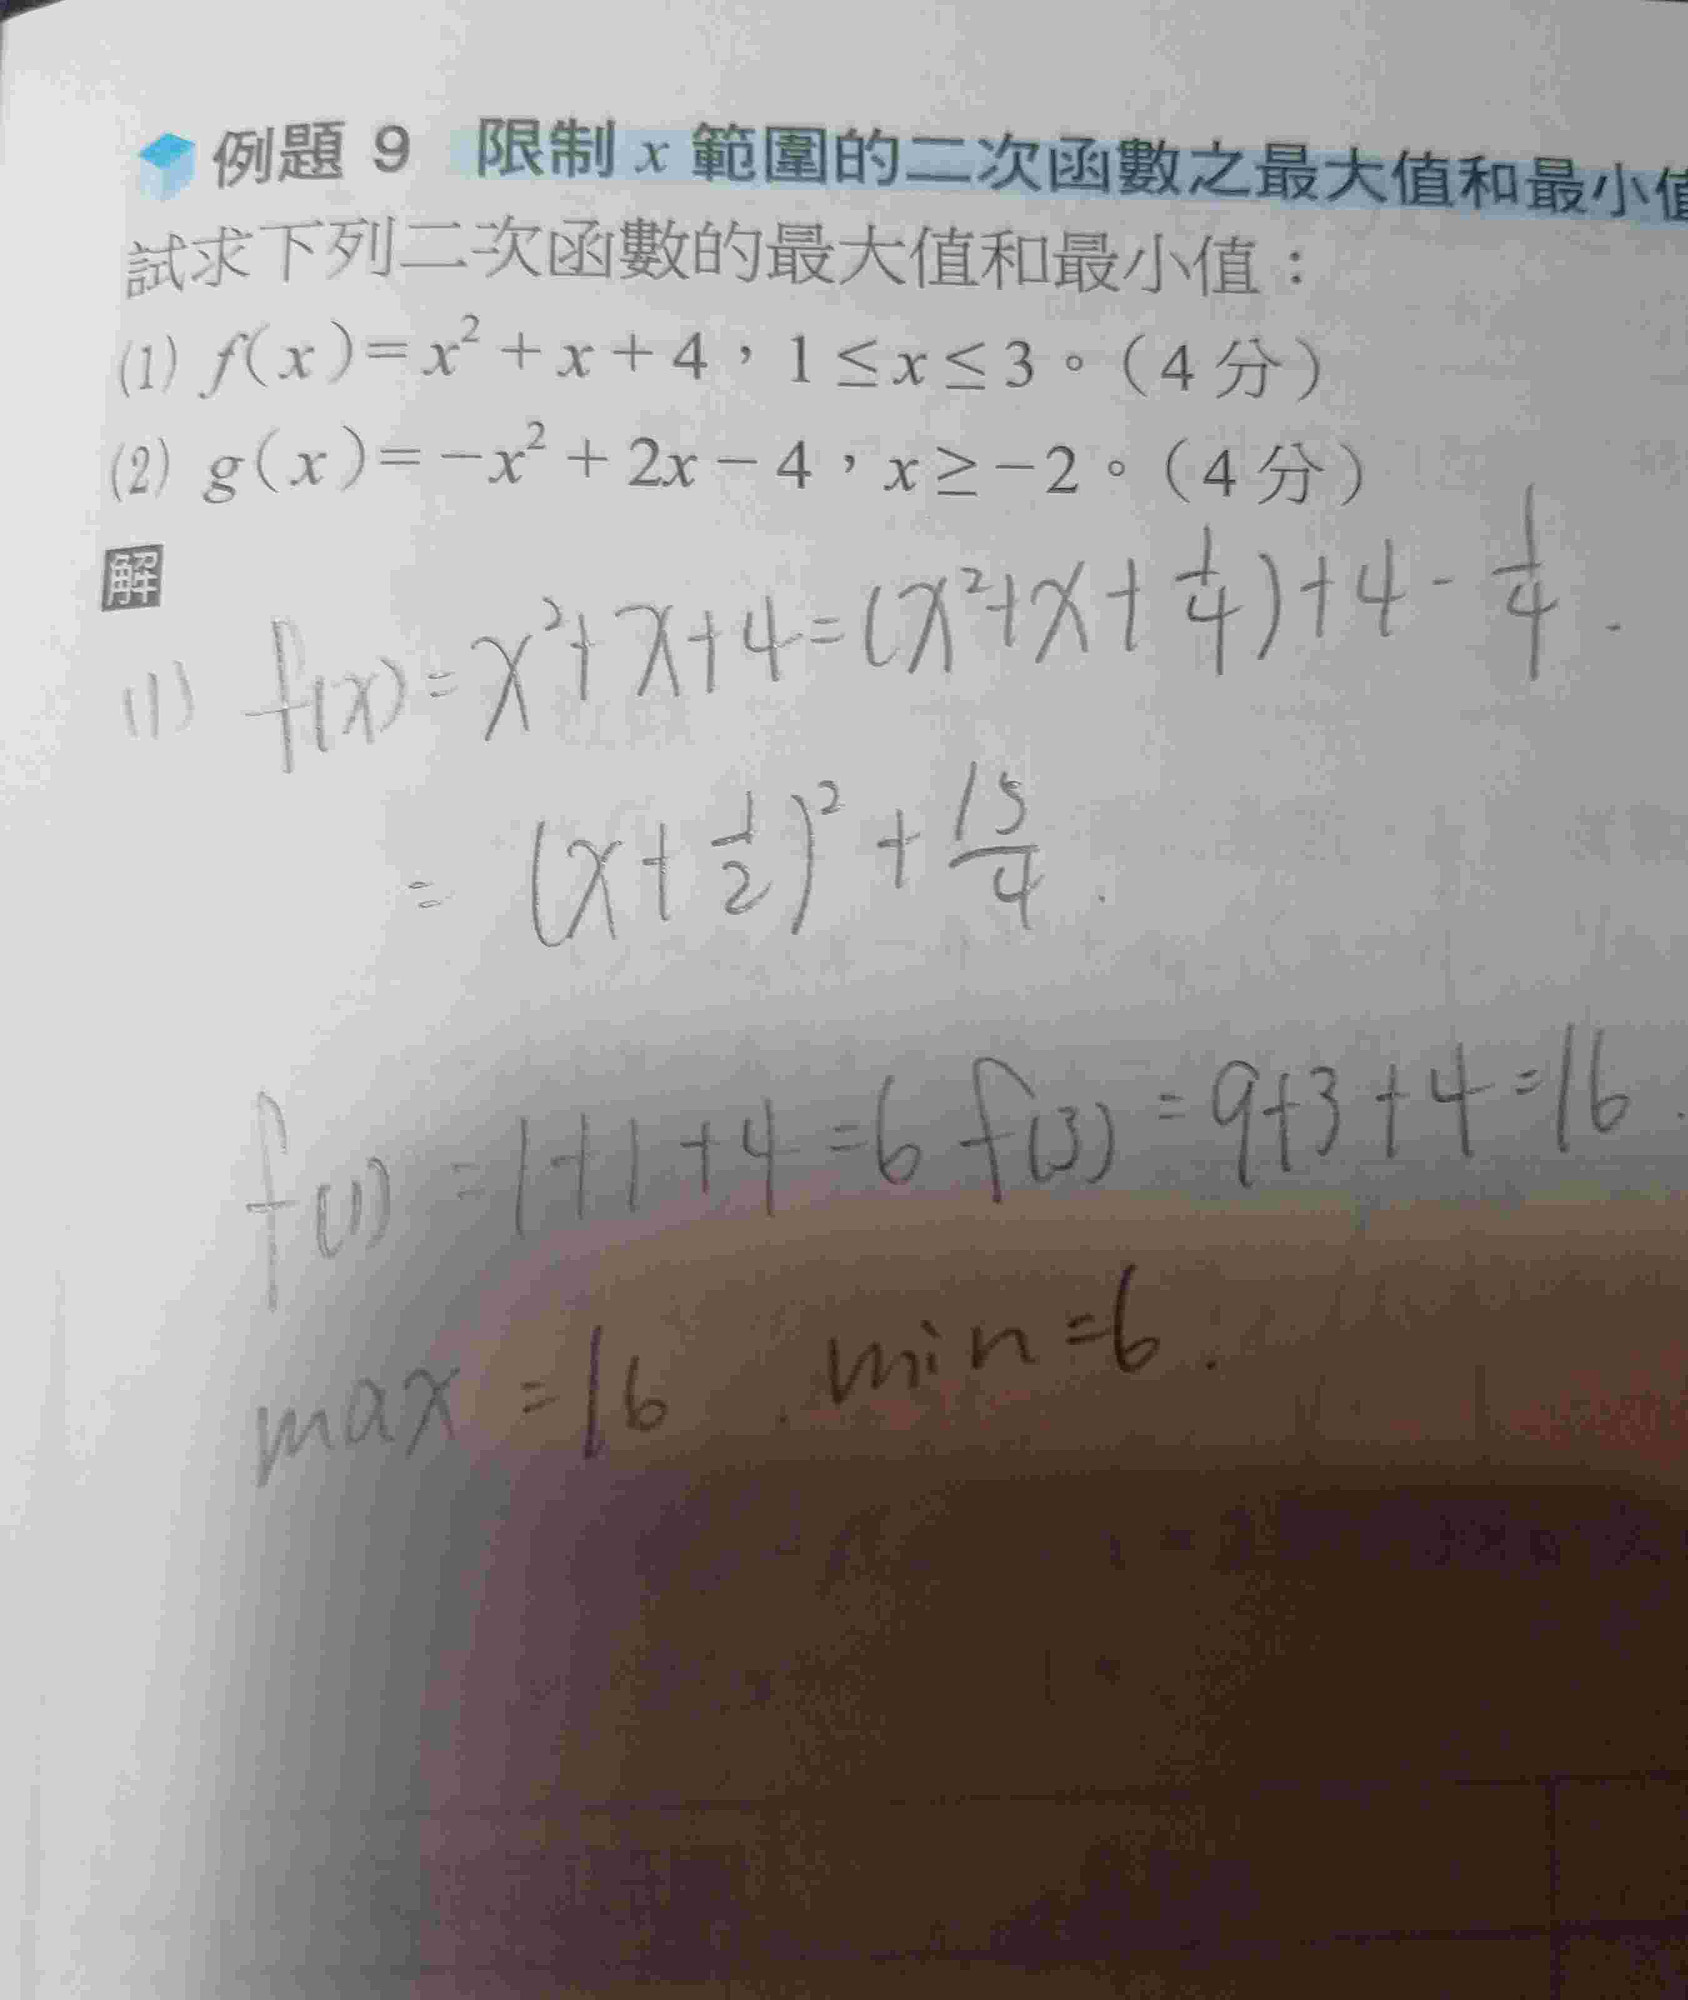 例題 9 限制 x 範圍的二次函數之最大值和最小值
試求下列二次函數的最大值和最小值：
(1) f(x)=x²+x+4，1≤x≤3。（4分）
(2) g(x)=-x²+2x-4，x≥-2。（4分）
解
(1) f(x)=x²+x+4=(x²+x+1/4)+4-1/4.
=(x+1/2)²+15/4.
f(1)=1+1+4=6 f(3)=9+3+4=16.
max=16. min=6.